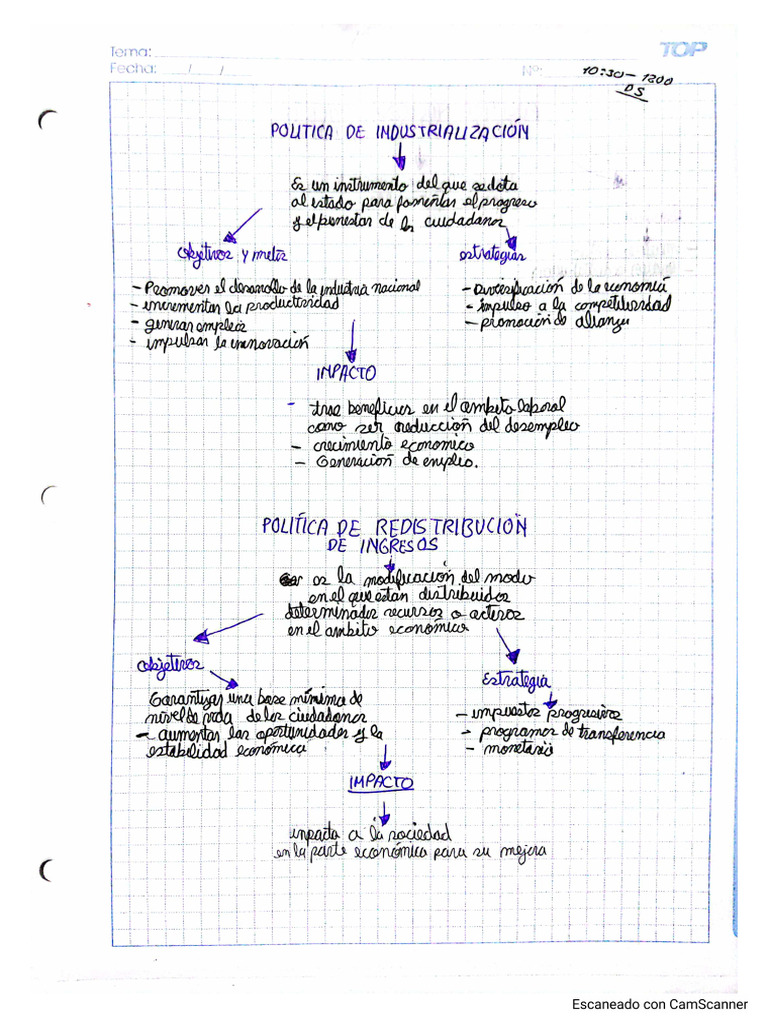 Tema:
TOP
Fecha: / /
Nº:
10:30 - 1200
DS
POLITICA DE INDUSTRIALIZACIÓN
Es un instrumento del que se dota
al estado para fomentar el progreso
y el bienestar de los cuidadanos
objetivos y metas
estrategias
- Promover el desarollo de la industria nacional
- incrementar la productividad
- generar empleos
- impulsar la innovación
- Diversificación de la economiá
- impulso a la competitividad
- promoción de alianza
IMPACTO
- trae beneficios en el ambito laboral
como ser reducción del desempleo
- crecimiento economico
- Generación de empleo.
POLITÍCA DE REDISTRIBUCIÓN
DE INGRESOS
es la modificación del modo
en el que están distribuidos
determinados recursos o activos
en el ambito económico
objetivos
Estrategia
Garantizar una base mínima de
nivel de vida de los ciudadanos
- aumentar las oportunidades y la
estabilidad económica
- impuestos progresivos
- programas de transferencia
- monetario
IMPACTO
impacta a la sociedad
en la parte económica para su mejora
Escaneado con CamScanner